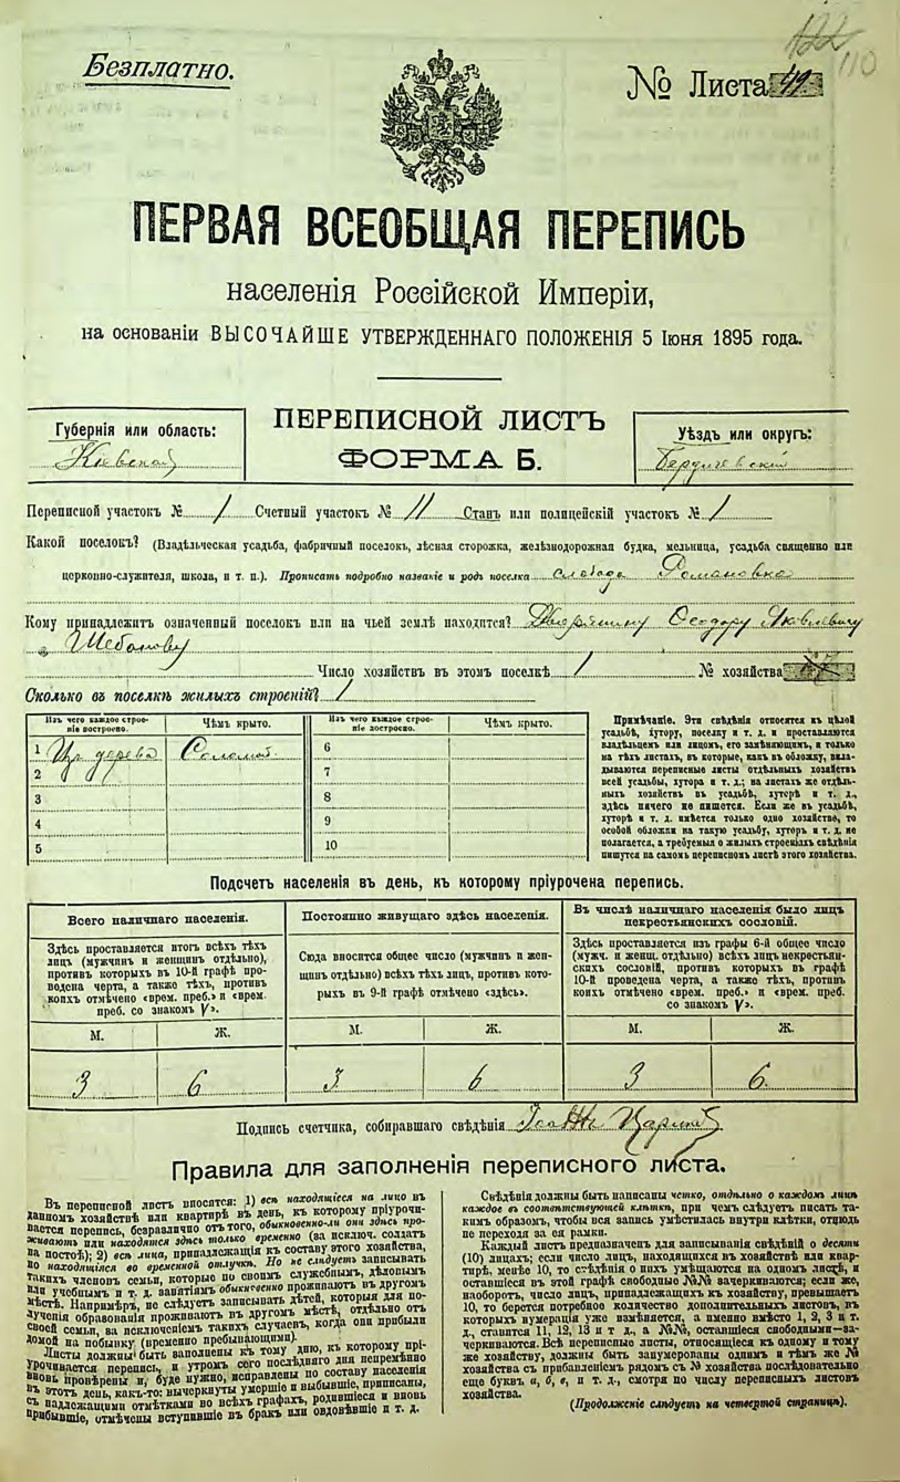 Безплатно.
№ Листа 49
122
110
ПЕРВАЯ ВСЕОБЩАЯ ПЕРЕПИСЬ
населенія Россійской Имперіи,
на основаніи ВЫСОЧАЙШЕ УТВЕРЖДЕННАГО ПОЛОЖЕНІЯ 5 Іюня 1895 года.
Губернія или область:
Кіевская
ПЕРЕПИСНОЙ ЛИСТЪ
ФОРМА Б.
Уѣздъ или округъ:
Бердичевскій
Переписной участокъ № 1 Счетный участокъ № 11 Станъ или полицейскій участокъ № 1
Какой поселокъ? (Владѣльческая усадьба, фабричный поселокъ, лѣсная сторожка, желѣзнодорожная будка, мельница, усадьба священно или
церковно-служителя, школа, и т. п.). Прописать подробно названіе и родъ поселка слобода Романовка
Кому принадлежитъ означенный поселокъ или на чьей землѣ находится? Дворянину Ѳеодору Яковлевичу
Число хозяйствъ въ этомъ поселкѣ 1 № хозяйства
Сколько въ поселкѣ жилыхъ строеній? 1
Изъ чего каждое строеніе построено.
Чѣмъ крыто.
Изъ чего каждое строеніе построено.
Чѣмъ крыто.
1 Изъ дерева Соломой
2
3
4
5
6
7
8
9
10
Примѣчаніе. Эти свѣдѣнія относятся къ цѣлой
усадьбѣ, хутору, поселку и т. д. и проставляются
владѣльцемъ или лицомъ, его замѣняющимъ, и только
на тѣхъ листахъ, въ которые, какъ въ обложку, вкла-
дываются переписные листы отдѣльныхъ хозяйствъ
всей усадьбы, хутора и т. д.; на листахъ же отдѣль-
ныхъ хозяйствъ въ усадьбѣ, хуторѣ и т. д.,
здѣсь ничего не пишется. Если же въ усадьбѣ,
хуторѣ и т. д. имѣется только одно хозяйство, то
особой обложки на такую усадьбу, хуторъ и т. д. не
полагается, а требуемыя о жилыхъ строеніяхъ свѣдѣнія
пишутся на самомъ переписномъ листѣ этого хозяйства.
Подсчетъ населенія въ день, къ которому пріурочена перепись.
Всего наличнаго населенія.
Здѣсь проставляется итогъ всѣхъ тѣхъ
лицъ (мужчинъ и женщинъ отдѣльно),
противъ которыхъ въ 10-й графѣ про-
ведена черта, а также тѣхъ, противъ
коихъ отмѣчено «врем. преб.» и «врем.
преб. со знакомъ V».
М. Ж.
3 6
Постоянно живущаго здѣсь населенія.
Сюда вносится общее число (мужчинъ и жен-
щинъ отдѣльно) всѣхъ тѣхъ лицъ, противъ кото-
рыхъ въ 9-й графѣ отмѣчено «здѣсь».
М. Ж.
3 6
Въ числѣ наличнаго населенія было лицъ
некрестьянскихъ сословій.
Здѣсь проставляется изъ графы 6-й общее число
(мужч. и женщ. отдѣльно) всѣхъ лицъ некрестьян-
скихъ сословій, противъ которыхъ въ графѣ
10-й проведена черта, а также тѣхъ, противъ
коихъ отмѣчено «врем. преб.» и «врем. преб.
со знакомъ V».
М. Ж.
3 6
Подпись счетчика, собиравшаго свѣдѣнія
Правила для заполненія переписного листа.
Въ переписной листъ вносятся: 1) всѣ находящіеся на лицо въ
данномъ хозяйствѣ или квартирѣ въ день, къ которому пріурочи-
вается перепись, безразлично отъ того, обыкновенно-ли они здѣсь про-
живаютъ или находятся здѣсь только временно (за исключ. солдатъ
на постоѣ); 2) всѣ лица, принадлежащія къ составу этого хозяйства,
но находящіяся во временной отлучкѣ. Но не слѣдуетъ записывать
такихъ членовъ семьи, которые по своимъ служебнымъ, дѣловымъ
или учебнымъ и т. д. занятіямъ обыкновенно проживаютъ въ другомъ
мѣстѣ. Напримѣръ, не слѣдуетъ записывать дѣтей, которыя для по-
лученія образованія проживаютъ въ другомъ мѣстѣ, отдѣльно отъ
своей семьи, за исключеніемъ такихъ случаевъ, когда они прибыли
домой на побывку (временно пребывающими).
Листы должны быть заполнены къ тому дню, къ которому прі-
урочивается перепись, и утромъ сего послѣдняго дня непремѣнно
вновь провѣрены и, буде нужно, исправлены по составу населенія
въ этотъ день, какъ-то: вычеркнуты умершіе и выбывшіе, приписаны,
съ надлежащими отмѣтками во всѣхъ графахъ, родившіеся и вновь
прибывшіе, отмѣчены вступившіе въ бракъ или овдовѣвшіе и т. д.
Свѣдѣнія должны быть написаны четко, отдѣльно о каждомъ лицѣ
каждое въ соотвѣтствующей клѣткѣ, при чемъ слѣдуетъ писать та-
кимъ образомъ, чтобы вся запись умѣстилась внутри клѣтки, отнюдь
не переходя за ея рамки.
Каждый листъ предназначенъ для записыванія свѣдѣній о десяти
(10) лицахъ; если число лицъ, находящихся въ хозяйствѣ или квар-
тирѣ, менѣе 10, то свѣдѣнія о нихъ умѣщаются на одномъ листѣ, и
оставшіеся въ этой графѣ свободные №№ зачеркиваются; если же,
наоборотъ, число лицъ, принадлежащихъ къ хозяйству, превышаетъ
10, то берется потребное количество дополнительныхъ листовъ, въ
которыхъ нумерація уже измѣняется, а именно вмѣсто 1, 2, 3 и т.
д., ставится 11, 12, 13 и т. д., а №№, оставшіеся свободными—за-
черкиваются. Всѣ переписные листы, относящіеся къ одному и тому
же хозяйству, должны быть занумерованы однимъ и тѣмъ же №
хозяйства съ прибавленіемъ рядомъ съ № хозяйства послѣдовательно
еще буквъ а, б, в, и т. д., смотря по числу переписныхъ листовъ
хозяйства.
(Продолженіе слѣдуетъ на четвертой страницѣ).